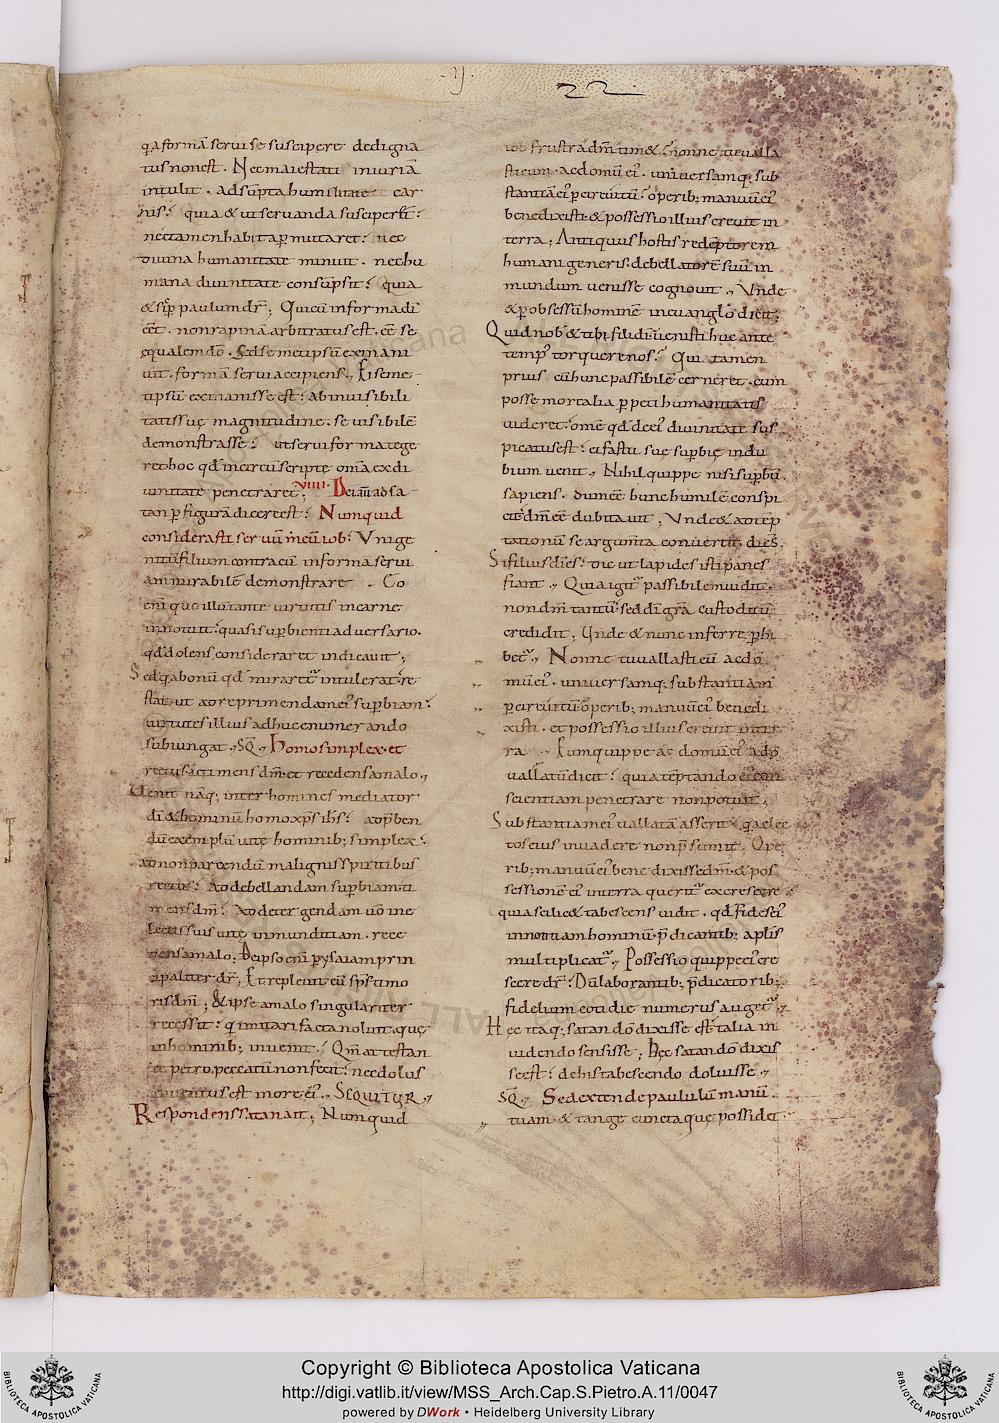 22
q̨a formā serui se suscipere dedigna
tus non est . Nec maiestati iniuriā
intulit . adsūpta humilitate car
nis; quia & ut seruanda susciper&;
nec tamen habita p̄mutaret; nec
diuina humanitate minuit . nec hu
mana diuinitate consūpsit; Quia
& si ꝑ paulum dr̄; Qui cū in forma di
ēēt . non rapinā arbitratus est . ēē se
equalem dō . Sed semetipsū exinani
uit . formā serui accipiens ., Ei seme
tipsū exinanisse est; ab inuisibili
tatis suę magnitudine . se uisibilē
demonstrasse; ut serui forma tege
ret hoc qd̄ incircūscripte om̄ia ex di
uinitate penetraret; .VIIII. Dei aūt ad sa
tan ꝑ figurā dicere est; Numquid
considerasti seruū meū iob; Unige
nitū filium contra eū in forma serui
ammirabilē demonstrare . Eo
eni quo illū tante uirtutis in carne
innotuit; quasi suꝑbienti aduersario .
qd̄ dolens consideraret indicauit;
Sed q̨a bonū qd̄ miraret~ intulerat; re
stat . ut ad reprimendam ei' suꝑbiam;
uirtutes illius adhuc enumerando
subiungat ., SQ̄ ., Homo simplex . et
rectus ac timens dm̄ . et recedens a malo .,
Uenit naq; inter homines mediator
di & hominū homo xp̄s ih̄s; ad p̄ben
dū exemplū uite hominib; simplex;
ad non parcendū malignis spiritibus
rectus; Ad debellandam suꝑbiam . ti
mens dm̄; Ad detergendam u&#772;o in e
lectis suis uite inmunditiam . rece
dens a malo; De ipso eni p ysaiam prin
cipaliter dr̄; Et repleuit eū sp̄s timo
ris dn̄i; & ipse a malo singulariter
recessit; q̨ imitari facta noluit . quę
in hominib; inuenit; Qm̄ attestan
te petro . peccatū non fecit; nec dolus
inuentus est in ore ei' . SEQUITUR .,
Respondens satan ait; Numquid
iob frustra dm̄ tim&; Nonne tu ualla
sti eum . ac domū ei' . uniuersamq; sub
stantiā ei' ꝑ circuitū; operib; manuū ei'
benedixisti . & possessio illius creuit in
terra; Antiquus hostis redeptorem
humani generis . debellatorē suū in
mundum uenisse cognouit ., Unde
& ꝑ obsessū hominē in euanglo dicit;
Quid nob' & tibi fili di; uenisti huc ante
temp' torquere nos; Qui tamen
prius cū hunc passibilē cerneret . cum
posse mortalia ꝑpeti humanitatis
uideret; om̄e qd̄ de ei' diuinitate sus
picatus est; ei fastu sue suꝑbię in du
bium uenit ., Nihil quippe nisi suꝑbū
sapiens . dum ēē hunc humilē conspi
cit . dm̄ ēē dubitauit; Unde & ad tēp
tationū se argumta conuertit . dicēs .
Si filius di es; dic ut lapides isti panes
fiant ., Quia igit~ passibilem uidit .
non dm̄ natū; sed di gr̄a custoditū
credidit; Unde & nunc inferre ꝑhi
bet~ ., Nonne tu uallasti eū ac do
mū ei' . uniuersamq; substantiam
ꝑ circuitū; operib; manuū ei' benedi
xisti . et possessio illius creuit in ter
ra . Eum quippe ac domū ei' a dō
uallatū dicit; qui a tēptando ei' con
scientiam penetrare non potuit .,
Substantiam ei' uallatā asserit . q̨a elec
tos eius inuadere non p̄sumit, Ope
rib; manuū ei' benedixisse dm̄ . & pos
sessionē ei' in terra querit~ excrescere;
quia scilic& tabescens uidit . qd̄ fides ei'
in notitiam hominū; p̄dicantib; aplis
multiplicat~ ., Possessio quippe ei' cre
scere dr̄; Dū laborantib; p̄dicatorib;
fidelium cotidie numerus auget~ .,
Hec itaq; satan dō dixisse est . talia in
uidendo sensisse; Hec satan dō dixis
se est; de his tabescendo doluisse .,
SQ̄ ., Sed extende paululū manū
tuam . & tange cuncta que possidet
Copyright © Biblioteca Apostolica Vaticana
http://digi.vatlib.it/view/MSS_Arch.Cap.S.Pietro.A.11/0047
powered by DWork • Heidelberg University Library
BIBLIOTECA APOSTOLICA VATICANA
BIBLIOTECA APOSTOLICA VATICANA